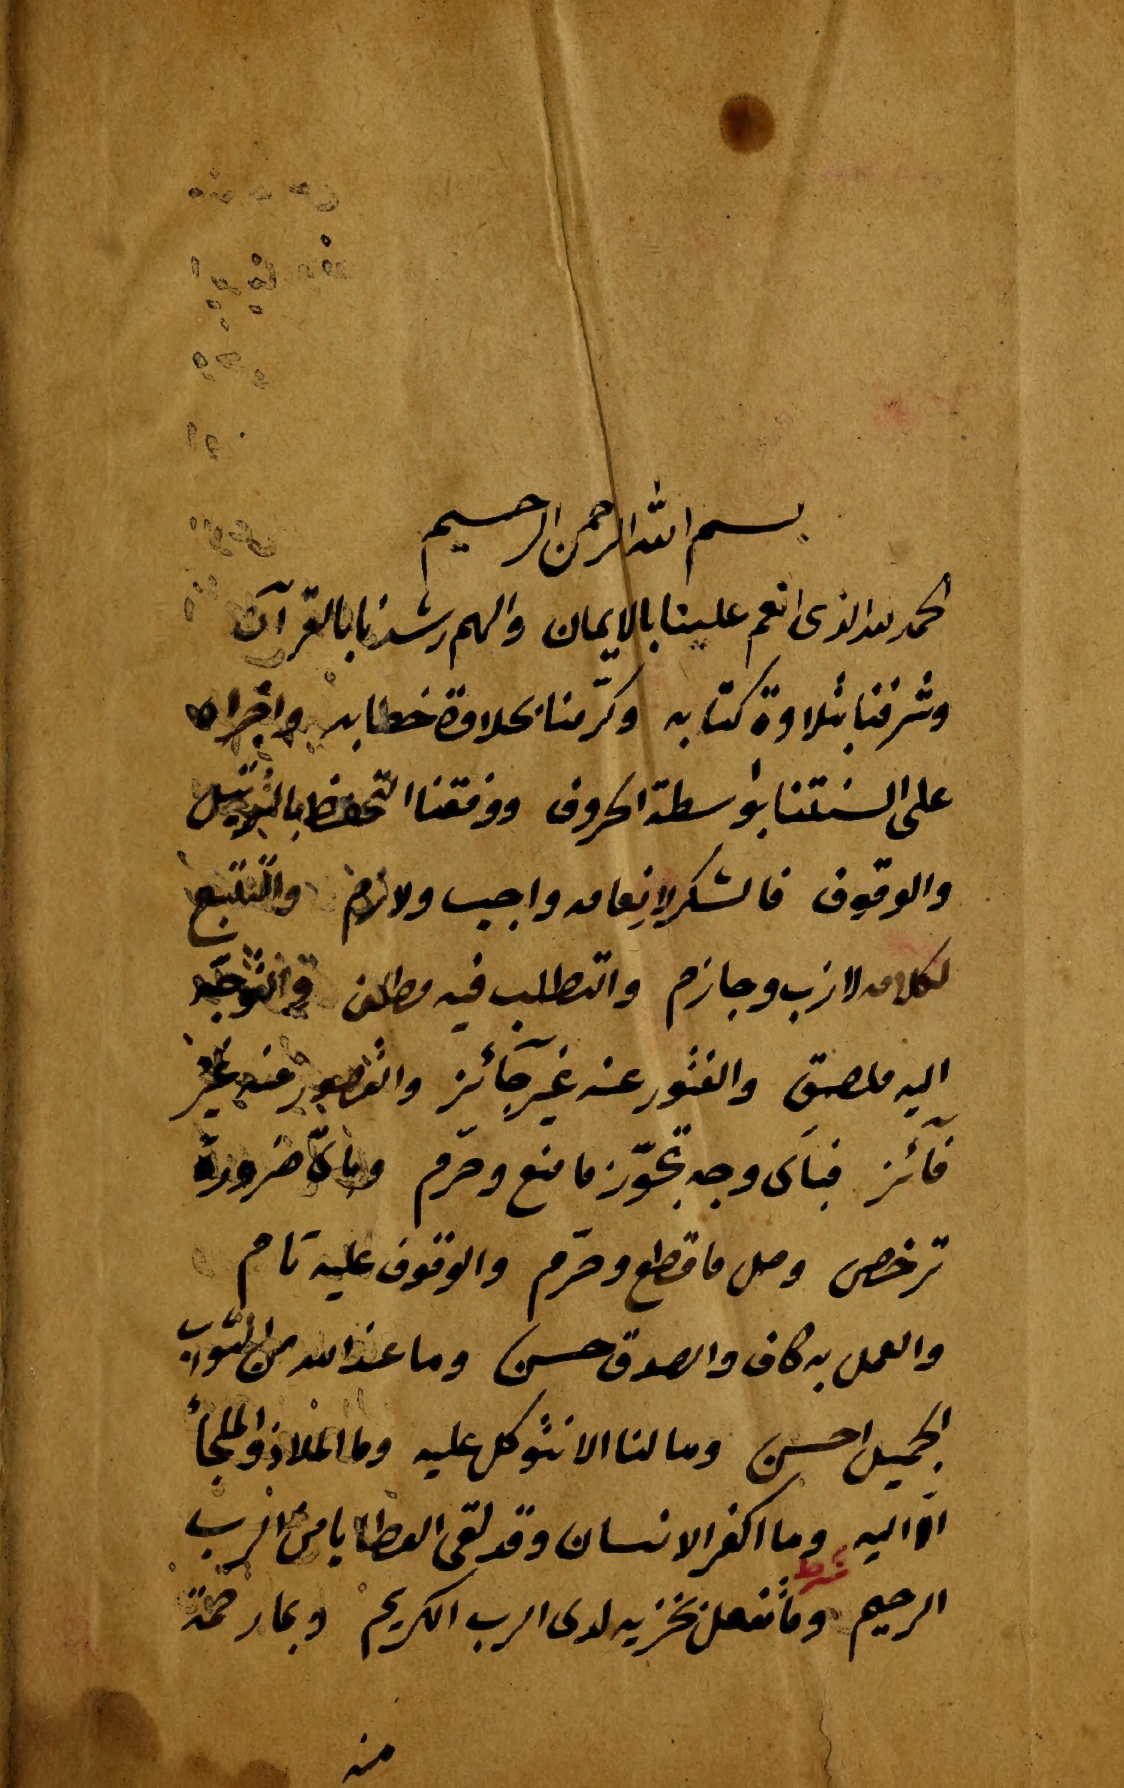 بسم الله الرحمن الرحيم
الحمد لله الذى انعم علينا بالايمان والهم رشدنا بالقرآن
وشرفنا بتلاوة كتابه وكرّمنا بحلاوة خطابه واجراه
على السنتنا بواسطة الحروف ووفقنا التحفظ بالترتيل
والوقوف فالشكر لإنعامه واجب ولازم والتتبع
لكلامه لازب وجازم والتطلب فيه مطلق والتوجّه
اليه ملصق والفتور عنه غير جآئز والقصور عنه غير
فآئز فبأى وجه تجوّز ما منع وحرّم وباىّ ضرورة
ترخص وصل ما قطع وحرّم والوقوف عليه تام
والعمل به كاف والصدق حسن وما عند الله من الثواب
الجميل احسن وما لنا الا نتوكل عليه وما الملاذ والملجأ
الّا اليه وما اكفر الانسان وقد لقى العطايا من الرب
شرط
الرحيم وما تفعل تجزيه لدى الرب الكريم وبما رحمة
منه